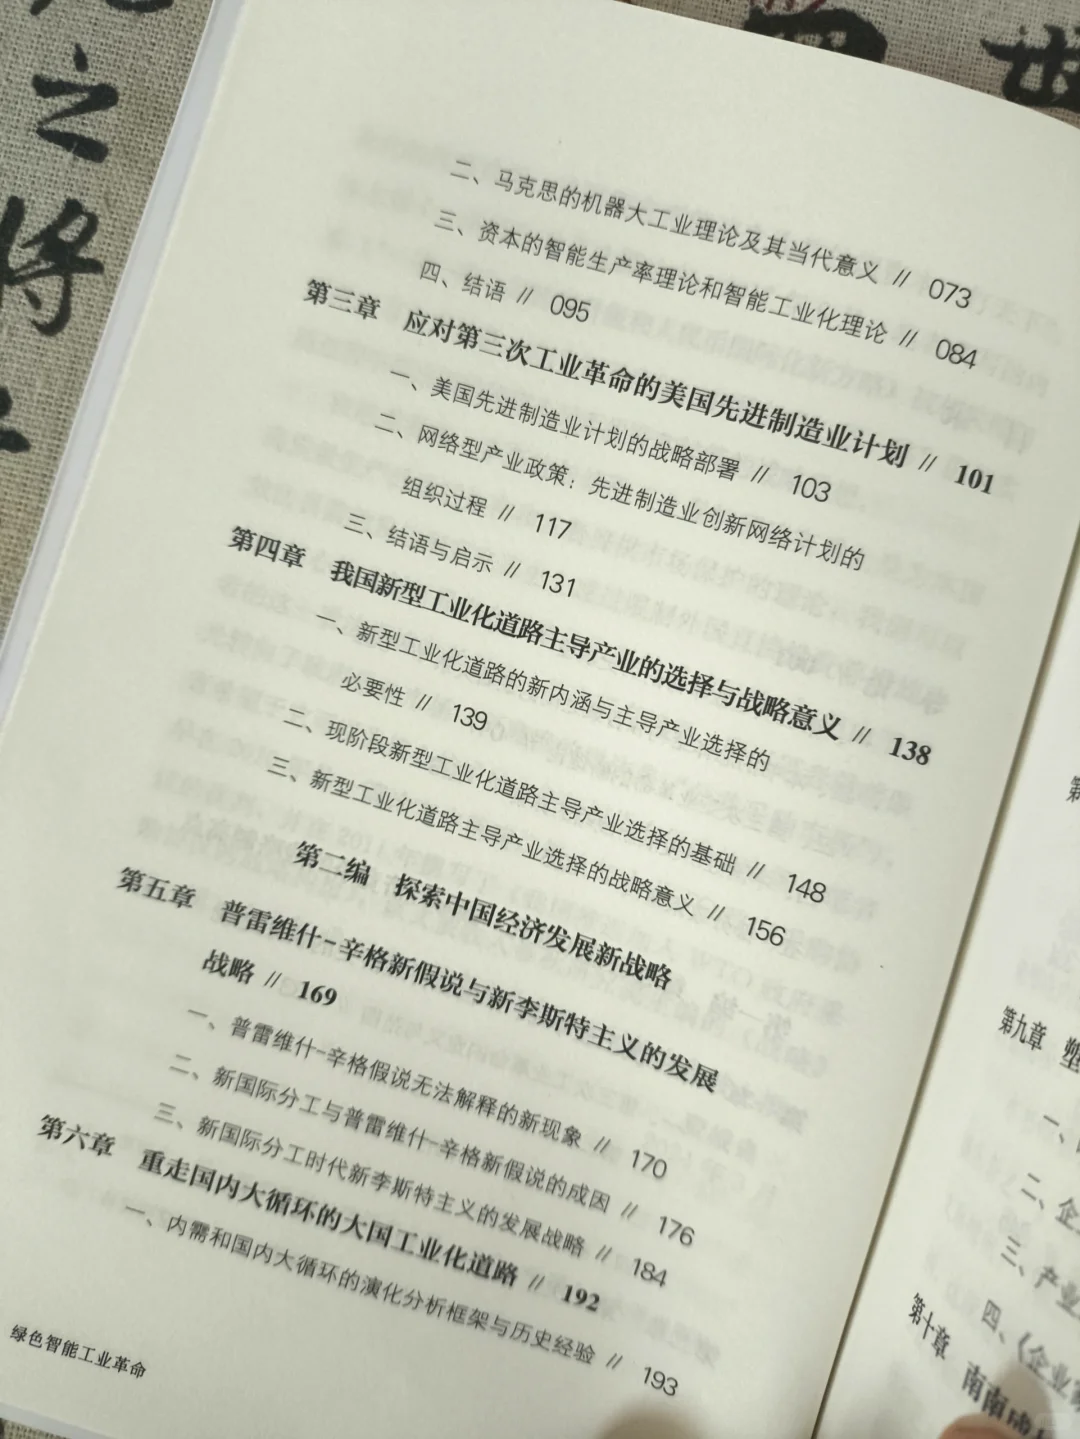 之
将
世
二、马克思的机器大工业理论及其当代意义 // 073
三、资本的智能生产率理论和智能工业化理论 // 084
四、结语 // 095
第三章 应对第三次工业革命的美国先进制造业计划 // 101
一、美国先进制造业计划的战略部署 // 103
二、网络型产业政策：先进制造业创新网络计划的
组织过程 // 117
三、结语与启示 // 131
第四章 我国新型工业化道路主导产业的选择与战略意义 // 138
一、新型工业化道路的新内涵与主导产业选择的
必要性 // 139
二、现阶段新型工业化道路主导产业选择的基础 // 148
三、新型工业化道路主导产业选择的战略意义 // 156
第二编 探索中国经济发展新战略
第五章 普雷维什-辛格新假说与新李斯特主义的发展
战略 // 169
一、普雷维什-辛格假说无法解释的新现象 // 170
二、新国际分工与普雷维什-辛格新假说的成因 // 176
三、新国际分工时代新李斯特主义的发展战略 // 184
第六章 重走国内大循环的大国工业化道路 // 192
一、内需和国内大循环的演化分析框架与历史经验 // 193
绿色智能工业革命
第九章 塑
一、
二、企
三、产业
四、《企业家
第十章 南南